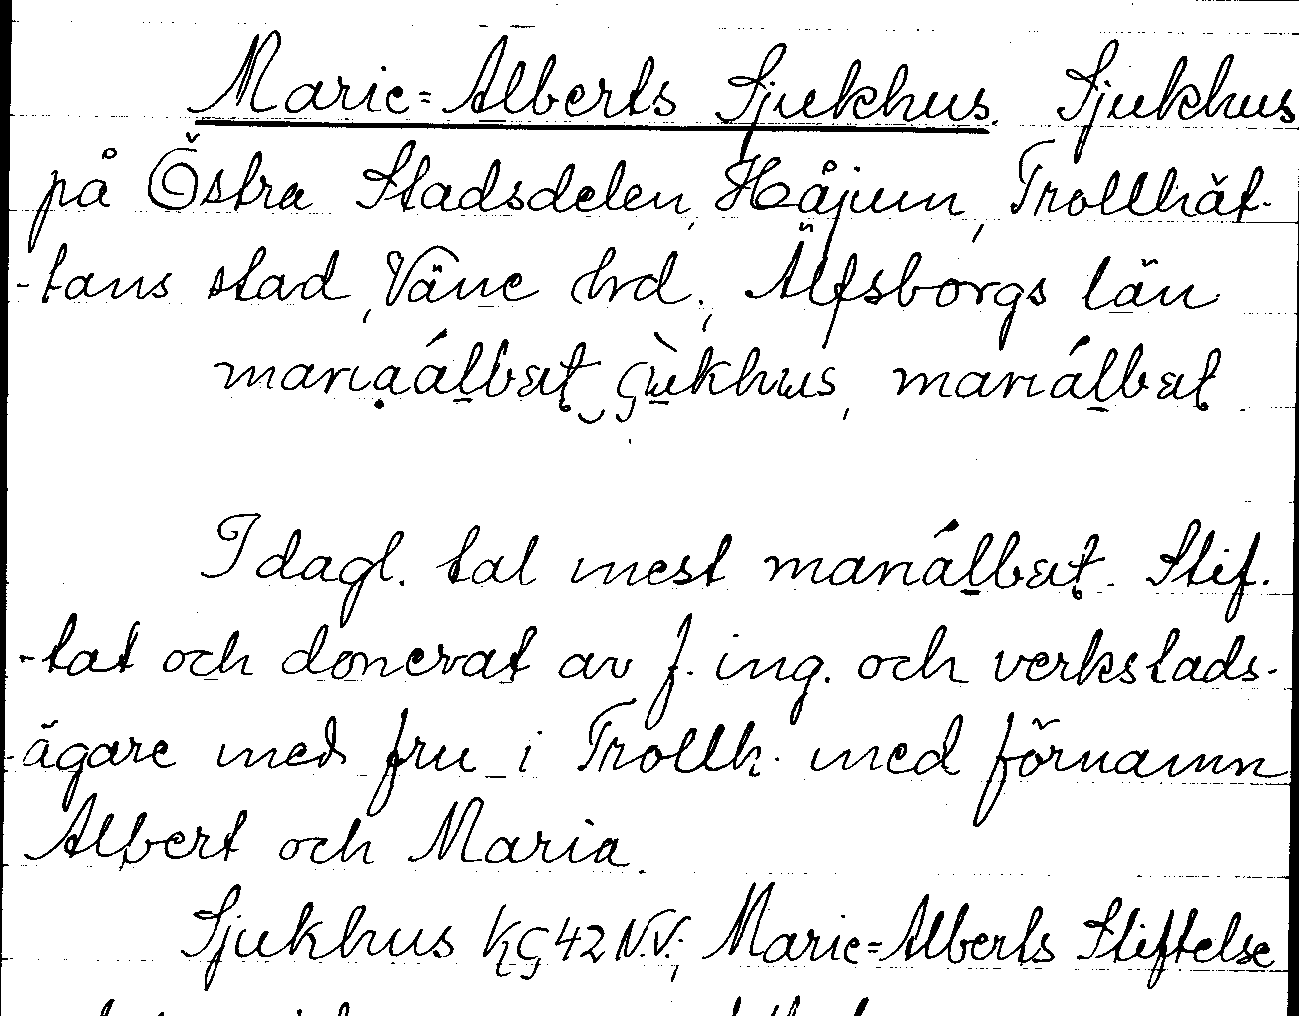 Marie=Alberts Sjukhus. Sjukhus
på Östra Stadsdelen, Håjum, Trollhät-
-tans stad, Väne hrd., Älfsborgs län
mariaálbæt sjùkhus, mariálbæt
I dagl. tal mest mariálbæt. Stif-
-tat och donerat av f. ing. och verkstads-
-ägare med fru i Trollh. med förnamn
Albert och Maria.
Sjukhus KG 42 N.V.; Marie=Alberts Stiftelse